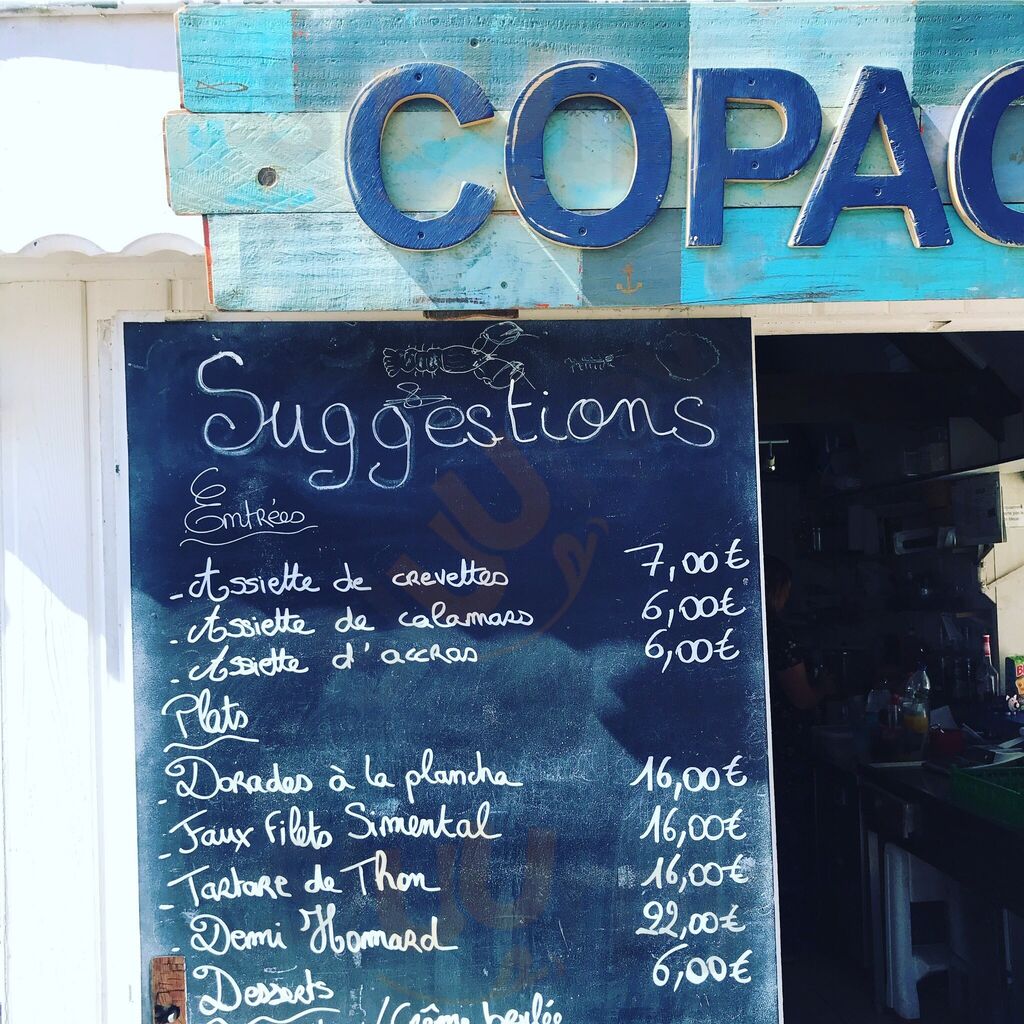 COPAC
Suggestions
Entrées
- Assiette de crevettes 7,00€
- Assiette de calamars 6,00€
- Assiette d'accras 6,00€
Plats
- Dorades à la plancha 16,00€
- Faux Filets Simental 16,00€
- Tartare de Thon 16,00€
- Demi Homard 22,00€
Desserts 6,00€
/Crême berlée